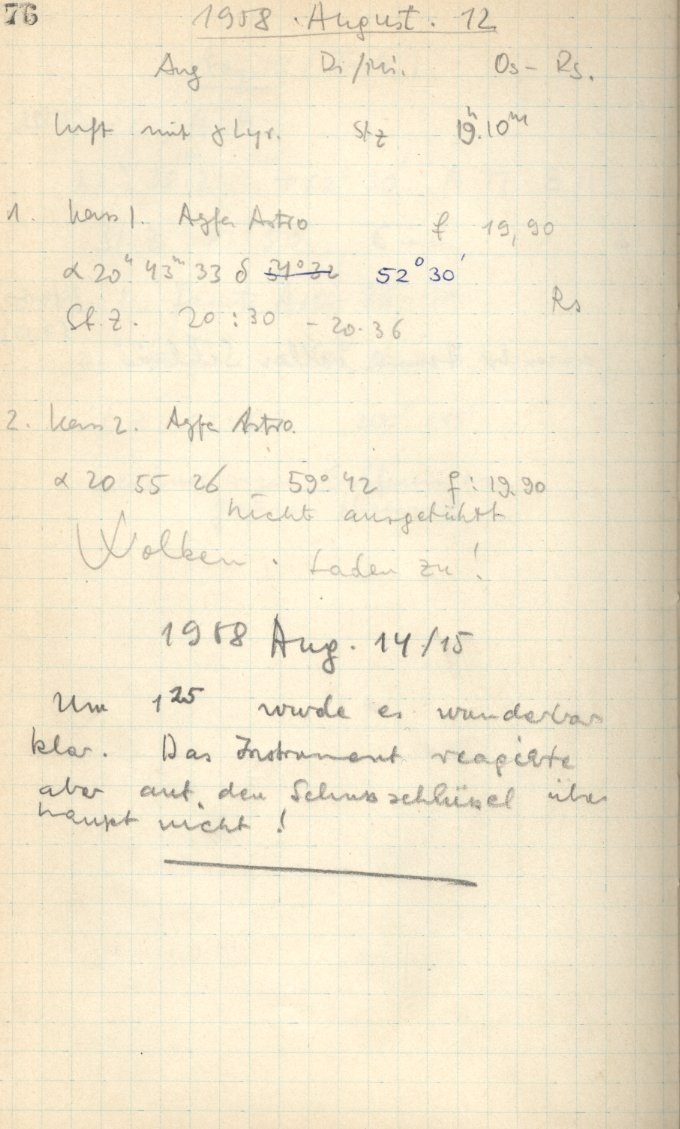 76
1958 . August . 12
Aug Di/Mi. Os - Rs.
Luft mit γ Lyr. St z 19h.10m
1. Kass 1. Agfa Astro f 19,90
α 20h 43m 33 δ 52° 30'
Rs
St. z. 20 : 30 - 20.36
2. Kass 2. Agfa Astro.
α 20 55 26 59° 42 f : 19.90
nicht ausgeführt
Wolken . Laden zu !
1958 Aug. 14/15
Um 1 25 wurde es wunderbar
klar. Das Instrument reagierte
aber auf den Schussschlüssel über
haupt nicht !